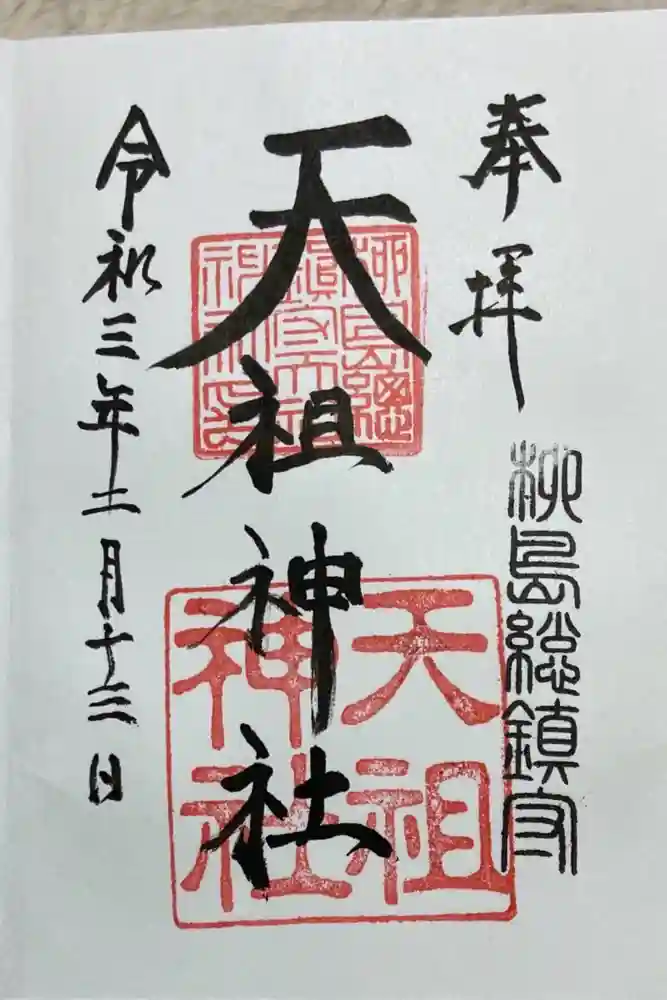 奉拝
柳島総鎮守
天祖神社
柳島總鎮守天祖神社印
天祖神社
令和三年二月十三日